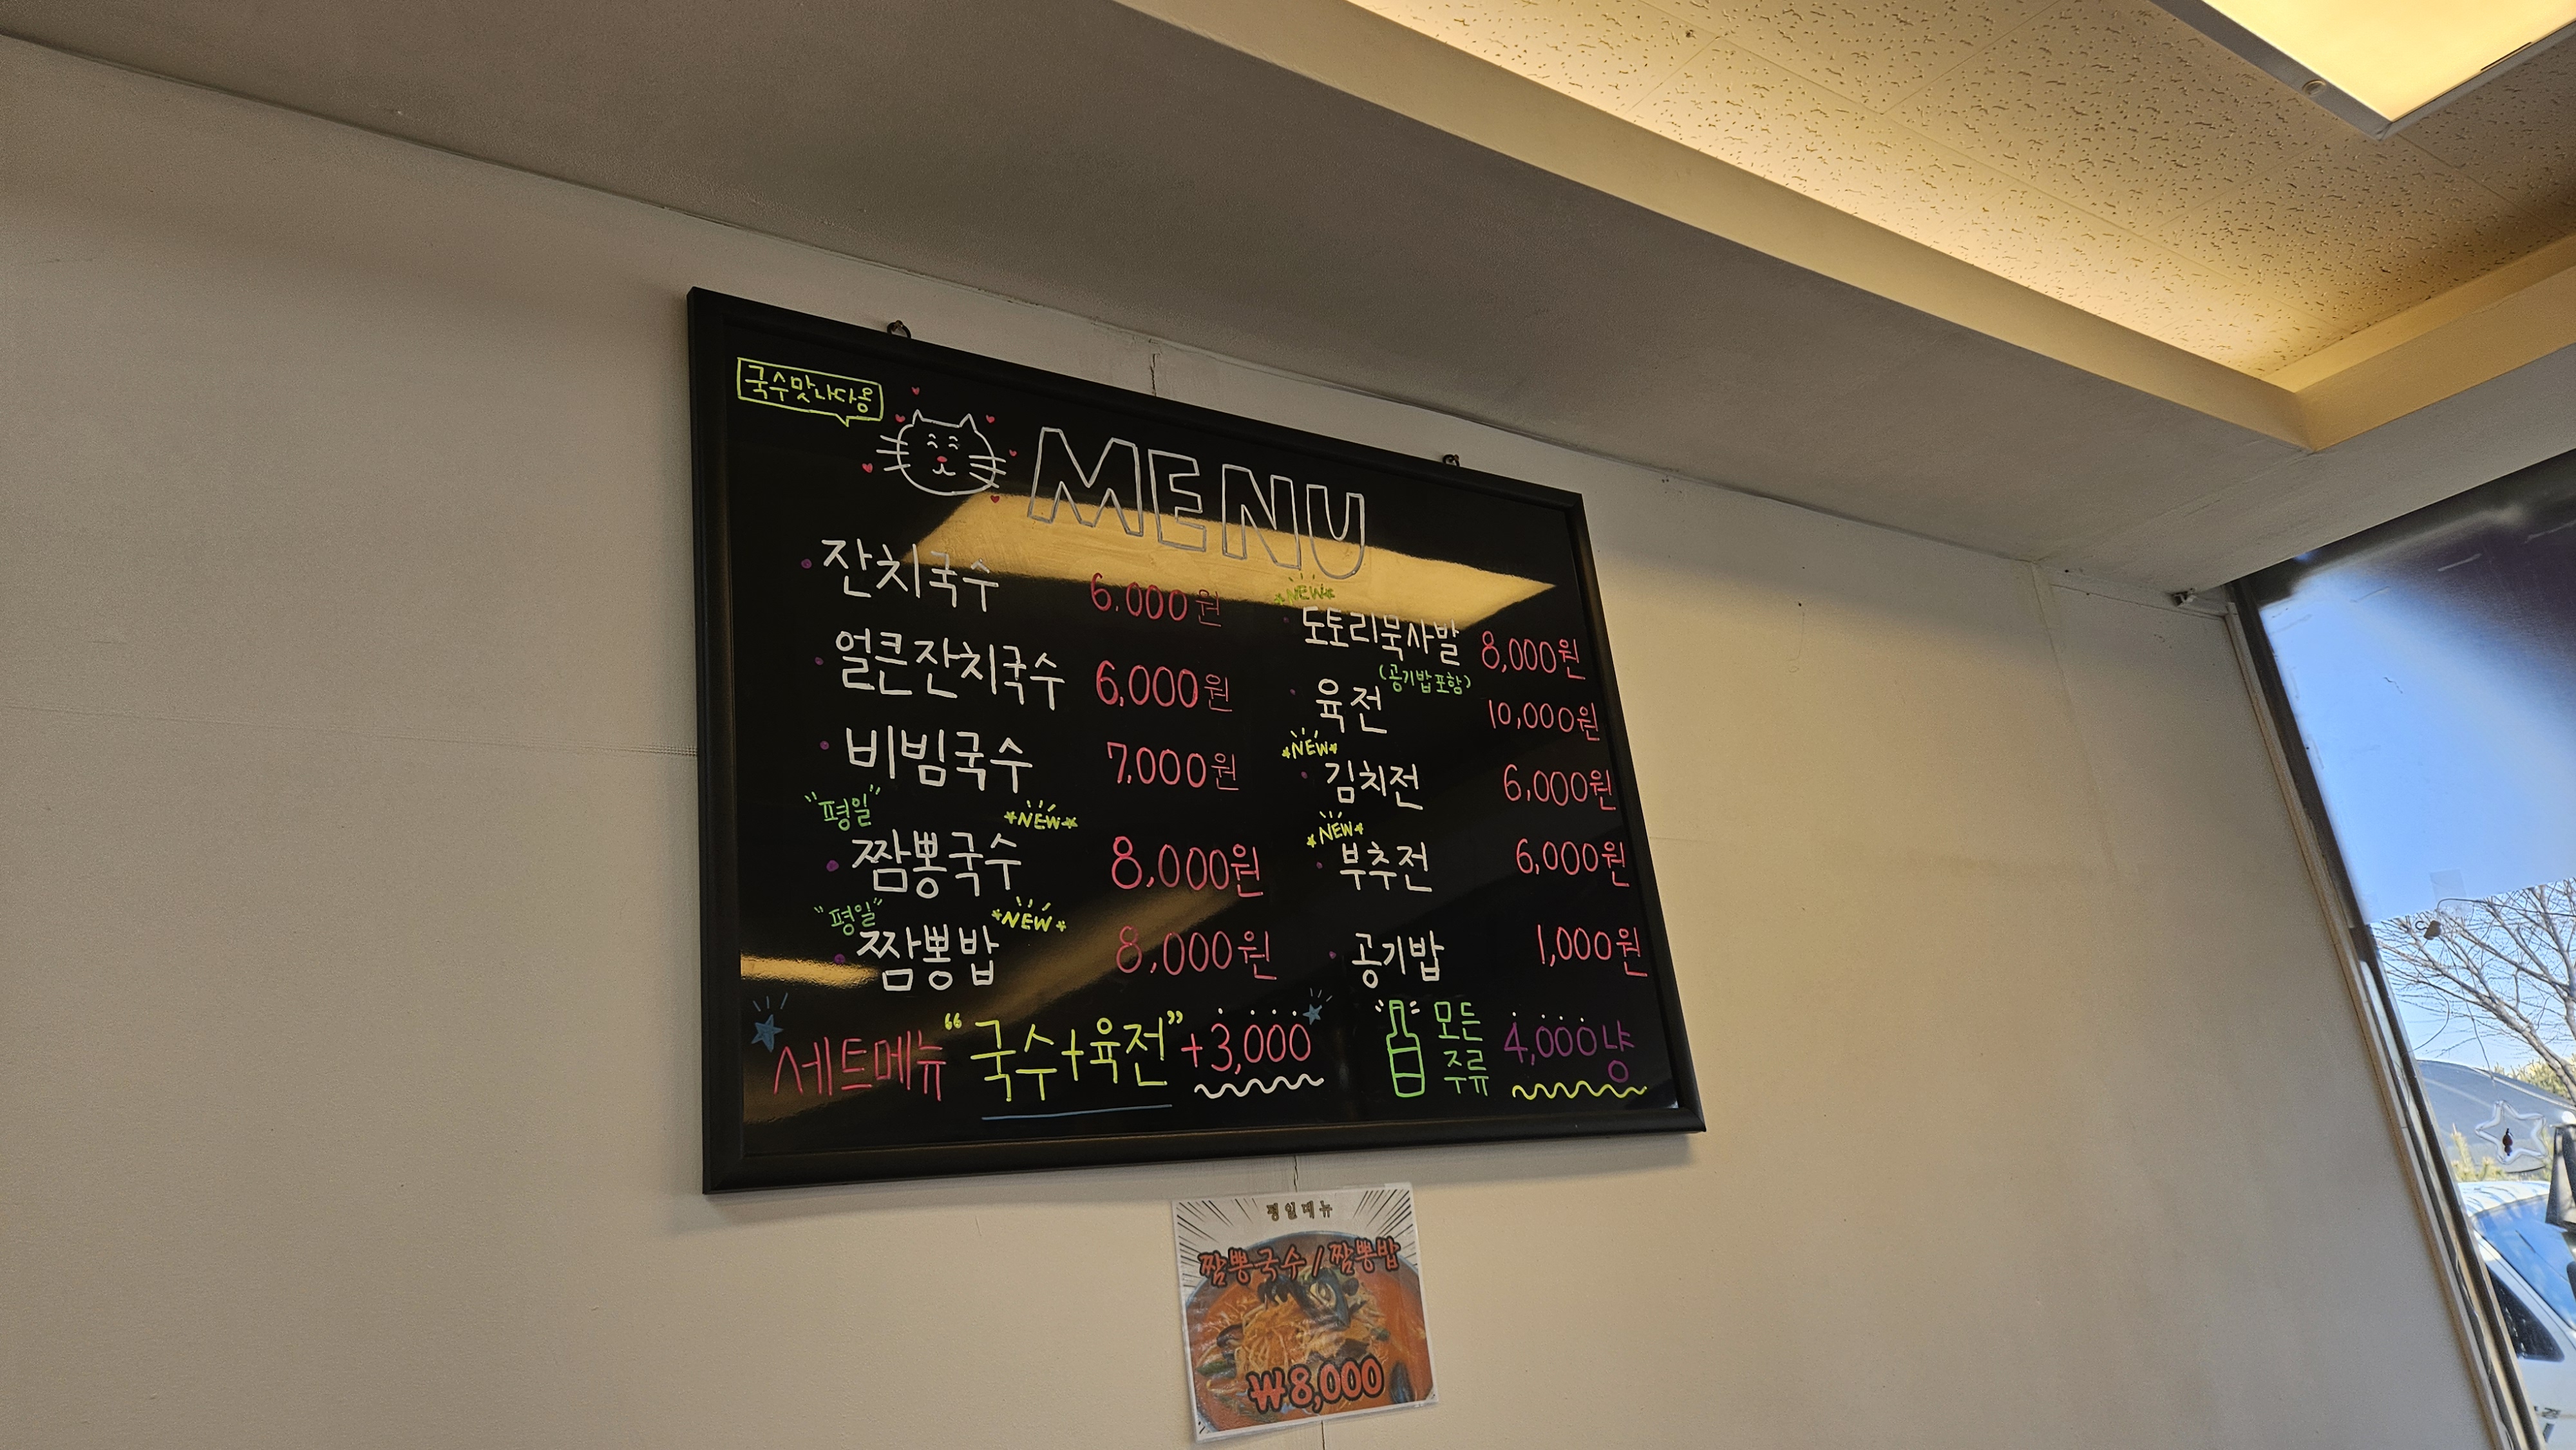 국수맛나다옹
MENU
잔치국수 6.000원
얼큰잔치국수 6,000원
비빔국수 7,000원
"평일" *NEW*
짬뽕국수 8,000원
"평일" *NEW*
짬뽕밥 8,000원
*NEW*
도토리묵사발 8,000원
(공기밥포함)
육전 10,000원
*NEW*
김치전 6,000원
*NEW*
부추전 6,000원
공기밥 1,000원
세트메뉴 "국수+육전" +3,000
모든
주류 4,000냥
평일메뉴
짬뽕국수 / 짬뽕밥
₩8,000